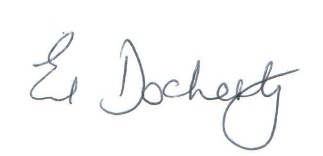 Ed Docherty